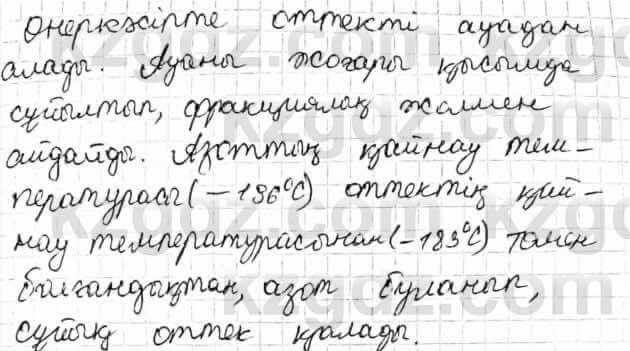 Өнеркәсіпте оттекті ауадан
алады. Ауаны жоғары қысымда
сұйылтып, фракциялық жолмен
айдайды. Азоттың қайнау тем-
пературасы (-196°C) оттектің қай-
нау температурасынан (-183°C) төмен
болғандықтан, азот буланып,
сұйық оттек қалады.